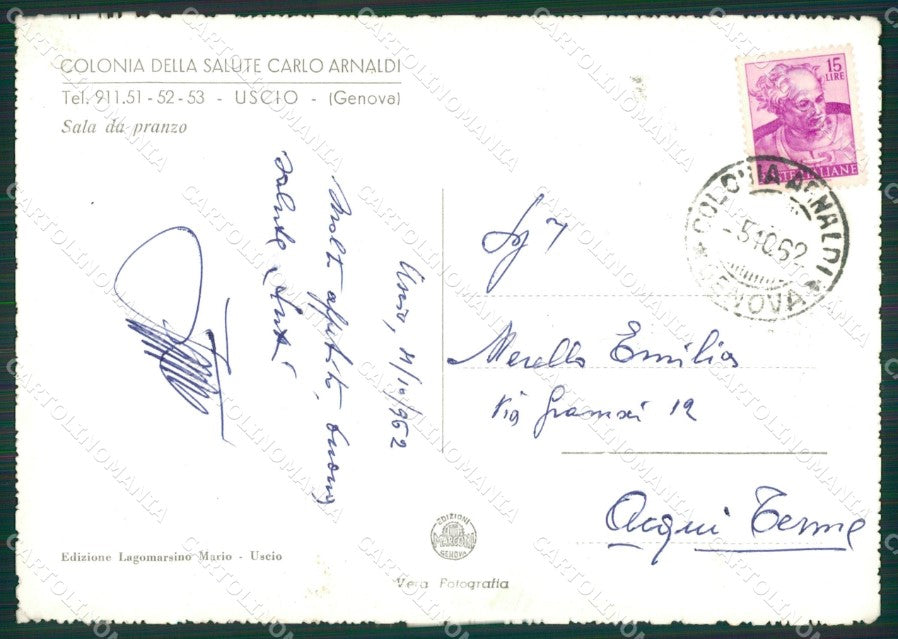 COLONIA DELLA SALUTE CARLO ARNALDI
Tel. 911.51 - 52 - 53 - USCIO - (Genova)
Sala da pranzo
15
LIRE
POSTE ITALIANE
COLONIA ARNALDI
-5.10.62
GENOVA
Uscio, 4/10/962
Molto appetito, buona
salute
Merello Emilio
Via Gramsci 12
Acqui Terme
Edizione Lagomarsino Mario - Uscio
EDIZIONI
GENOVA
Vera Fotografia
CARTOLINOMANIA